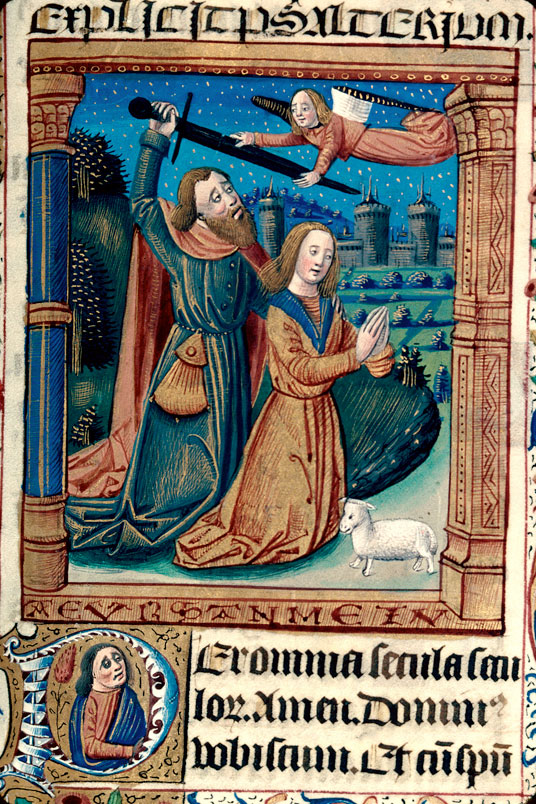 EXPLICIT PSALTERIUM.
AEVRSTNMEIN
Per omnia secula secu
lor. Amen. Domin⁹
vobiscum. Et cū spū